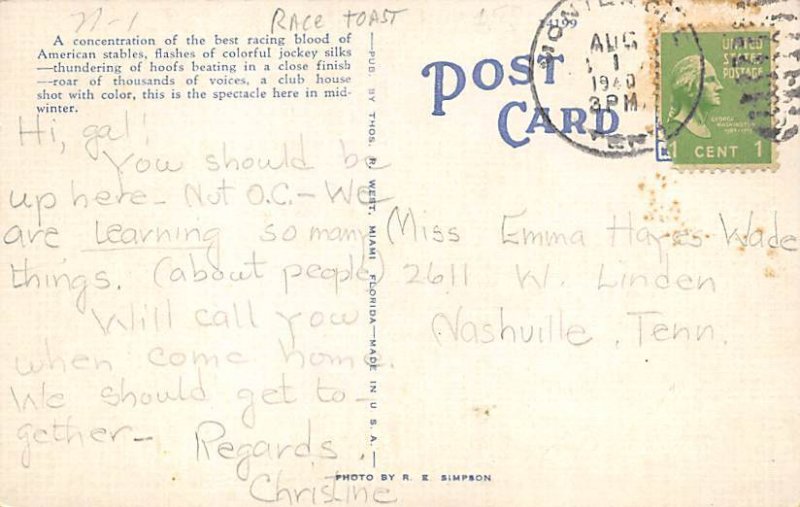 RACE TOAST
A concentration of the best racing blood of
American stables, flashes of colorful jockey silks
—thundering of hoofs beating in a close finish
—roar of thousands of voices, a club house
shot with color, this is the spectacle here in mid-
winter.
Hi, gal!
You should be
up here – Not O.C. – We
are learning so many
things. (about people)
Will call you
when come home.
We should get to-
gether – Regards,
Christine
—PUB. BY THOS. R. WEST, MIAMI FLORIDA—MADE IN U. S. A.—
PHOTO BY R. E. SIMPSON
POST
CARD
MONTEAGLE
AUG
1
1940
3 PM
TENN
UNITED
STATES
POSTAGE
GEORGE
WASHINGTON
1 CENT 1
Miss Emma Hayes Wade
2611 W. Linden
Nashville, Tenn.